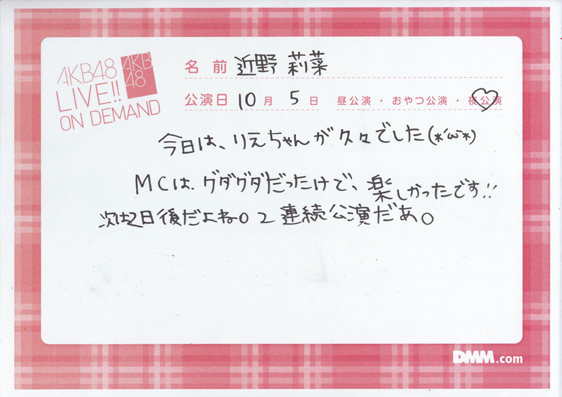 AKB48
LIVE!!
ON DEMAND
AKB
48
名前 近野 莉菜
公演日 10月 5日 昼公演・おやつ公演・夜公演
今日は、りえちゃんが久々でした(*'ω'*)
MCは、グダグダだったけで、楽しかったです!!
次は2日後だよね。2連続公演だあ。
DMM.com